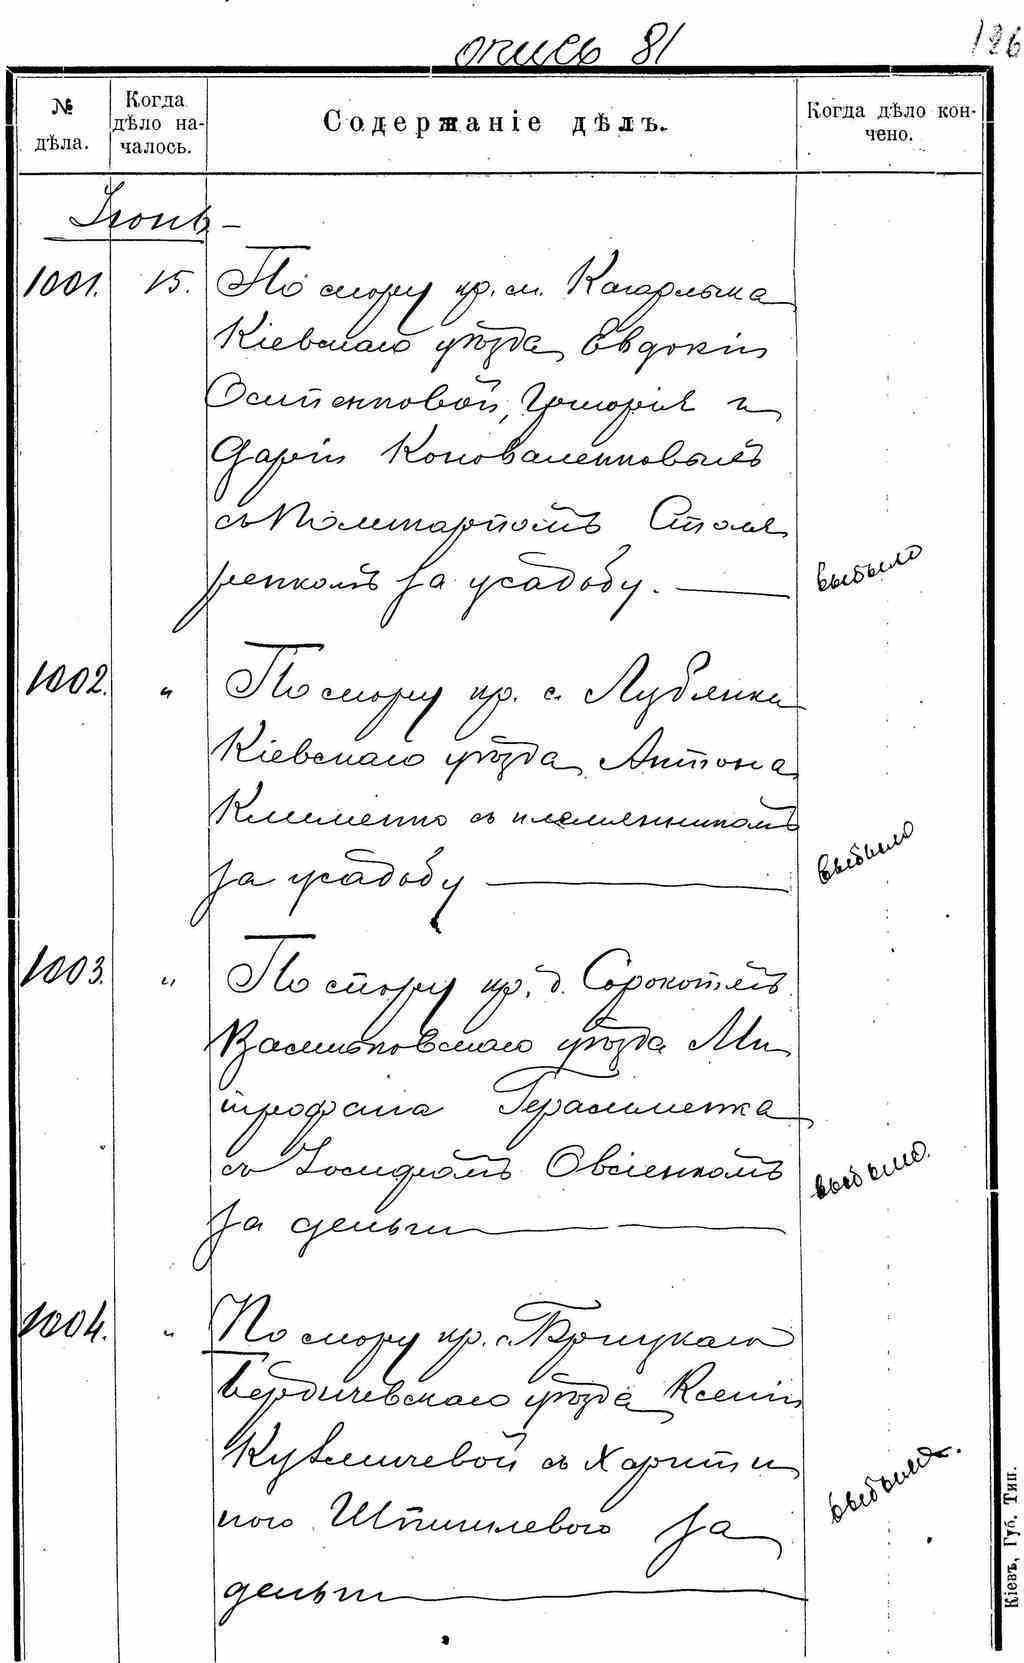 опись 81
126
№ дѣла.
Когда дѣло на-
чалось.
Содержаніе дѣлъ.
Когда дѣло кон-
чено.
Іюнь –
1001. 15. По спору кр. м. Кагарлыка
Кіевскаго уѣзда Евдокіи
Осипенковой, Григорія и
Дарьи Коноваленковыхъ
съ Поликарпомъ Столя
ренкомъ за усадьбу. —
выбыло
1002. " По спору кр. с. Лубянки
Кіевскаго уѣзда Антона
Клименко съ племянникомъ
за усадьбу —
выбыло
1003. " По спору кр. д. Сорокотягъ
Васильковскаго уѣзда Ми
трофана Герасименка
съ Іосифомъ Овсіенкомъ
за деньги —
выбыло.
1004. " По спору кр. с.
Бердичевскаго уѣзда Ксеніи
Кузьмичевой съ Харити
ного за
деньги —
выбыло.
Кіевъ, Губ. Тип.